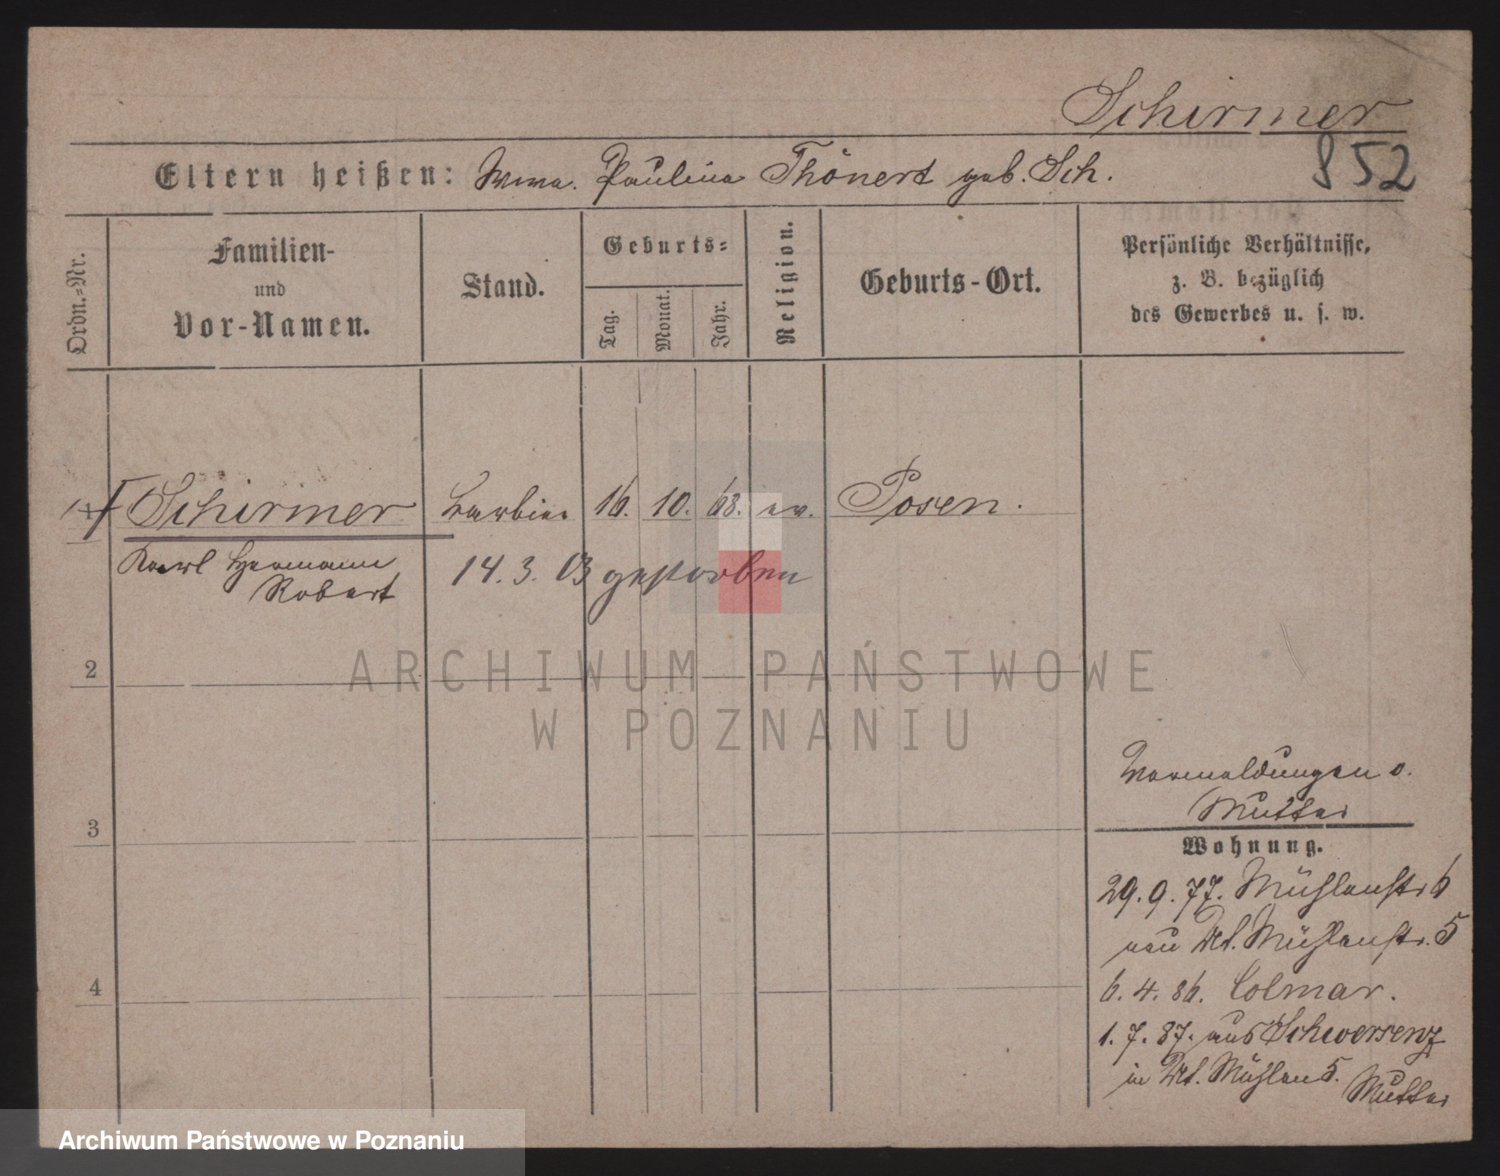 Schirmer
852
Eltern heißen: Wwe. Paulina Thönert geb. Sch.
Ordn.-Nr.
Familien-
und
Vor-Namen.
Stand.
Geburts-
Tag.
Monat.
Jahr.
Religion.
Geburts-Ort.
Persönliche Verhältnisse,
z. B. bezüglich
des Gewerbes u. s. w.
1 Schirmer Barbier 16. 10. 68. ev. Posen.
Karl Hermann
Robert
14. 3. 03 gestorben
2
3
4
Mutter
Wohnung.
29. 9. 77. Mühlenstr 6
neu St. Mühlenstr. 5
6. 4. 86. Colmar.
1. 7. 87. aus Schwersenz
in St. Mühlen 5.
Mutter
ARCHIWUM PAŃSTWOWE
W POZNANIU
Archiwum Państwowe w Poznaniu